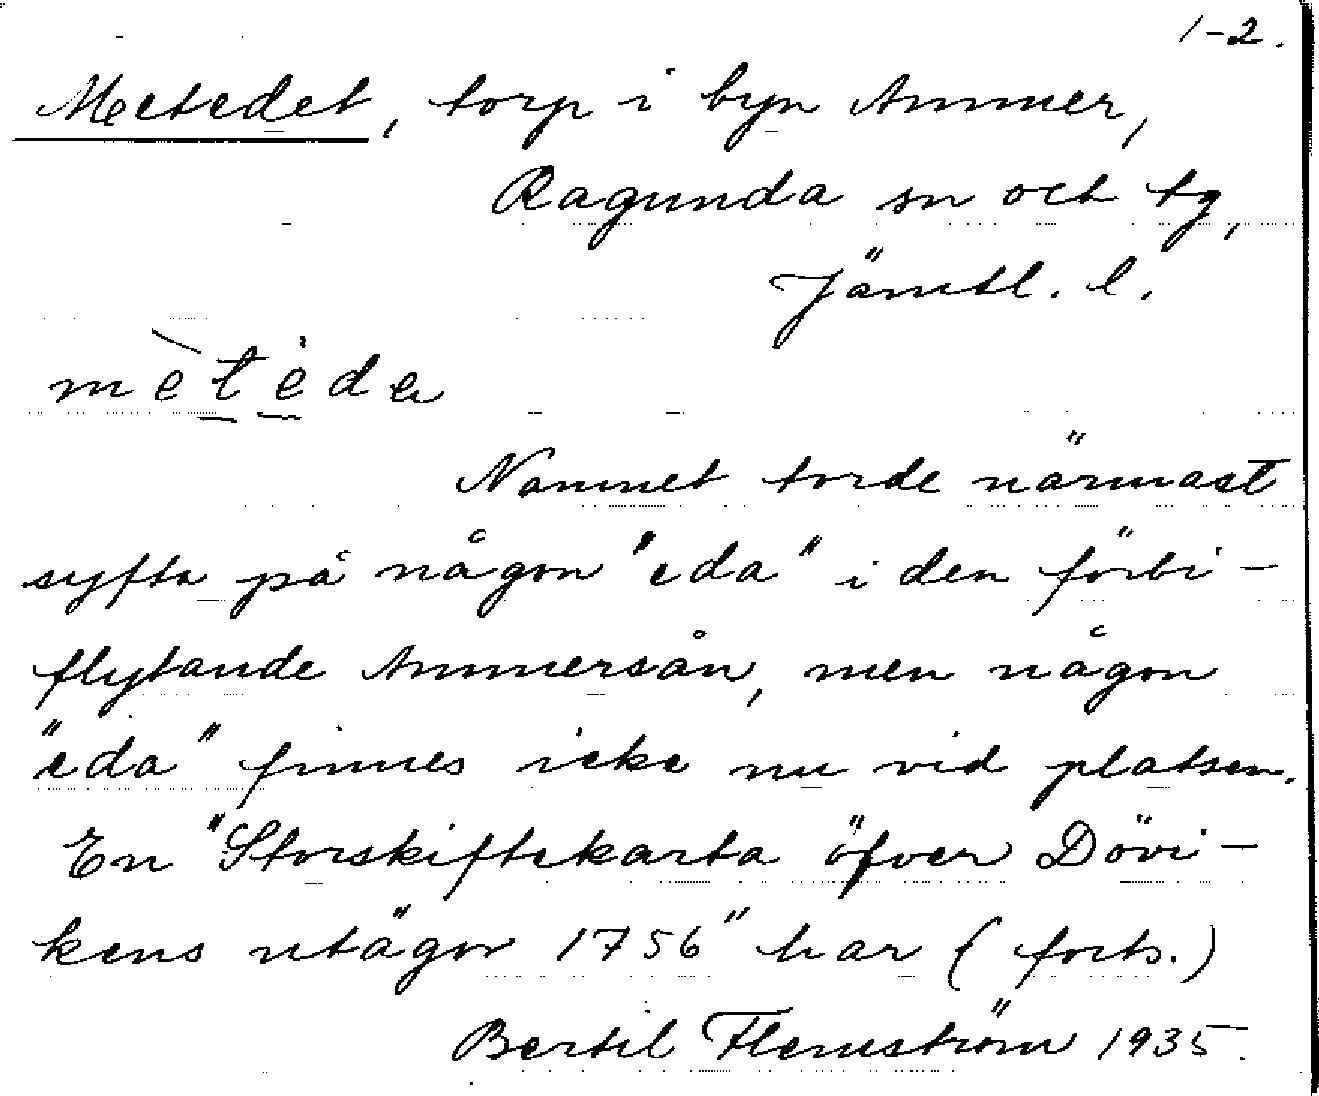 1-2.
Metedet, torp i byn Ammer,
Ragunda sn och tg,
Jämtl. l.
mètèda
Namnet torde närmast
syfta på någon "eda" i den förbi-
flytande Ammersån, men någon
"eda" finnes icke nu vid platsen.
En "Storskiftekarta öfver Dövi-
kens utägor 1756" har (forts.)
Bertil Flemström 1935.